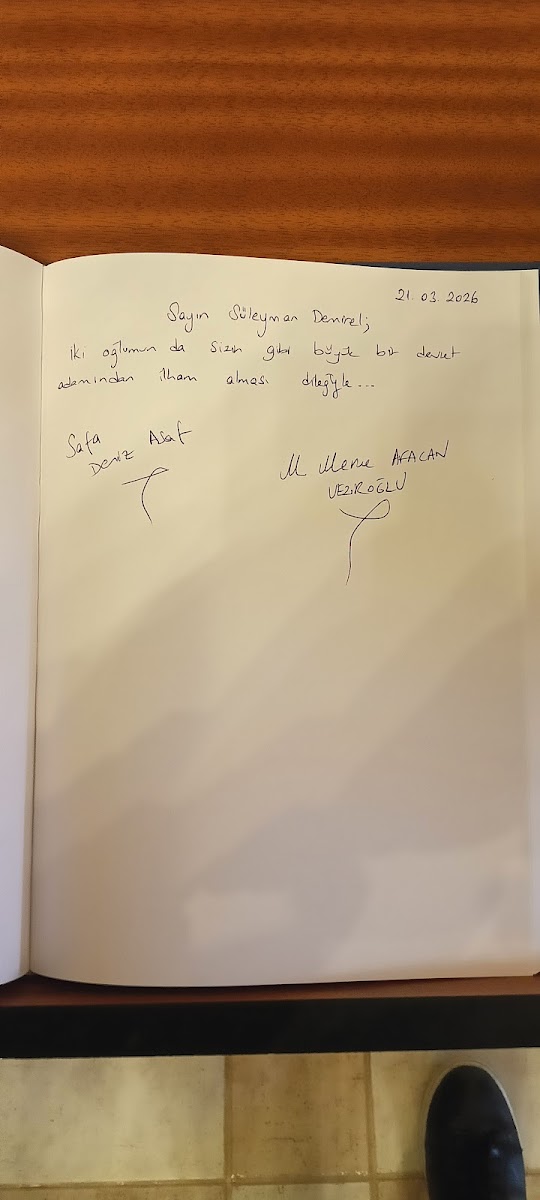 21.03.2026
Sayın Süleyman Demirel;
İki oğlumun da sizin gibi büyük bir devlet
adamından ilham alması dileğiyle...
Safa
Deniz Asaf
M Merve AFACAN
VEZİROĞLU